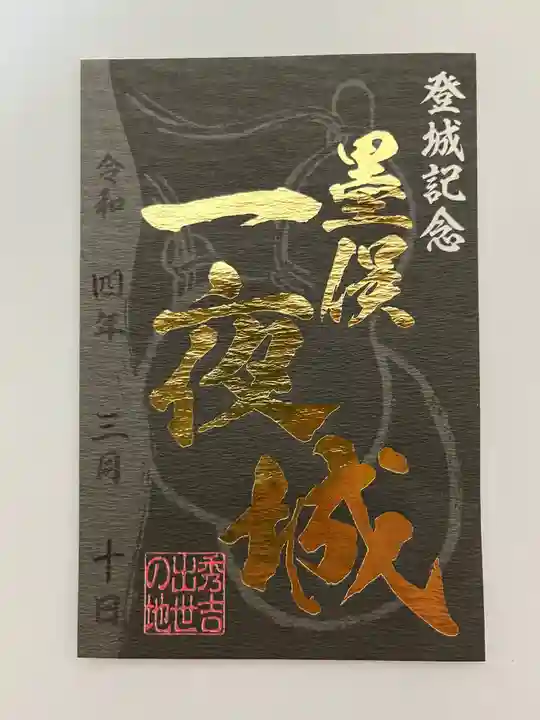 登城記念
墨俣
一夜
城
秀吉
出世
の地
令和 四年 三月 十日